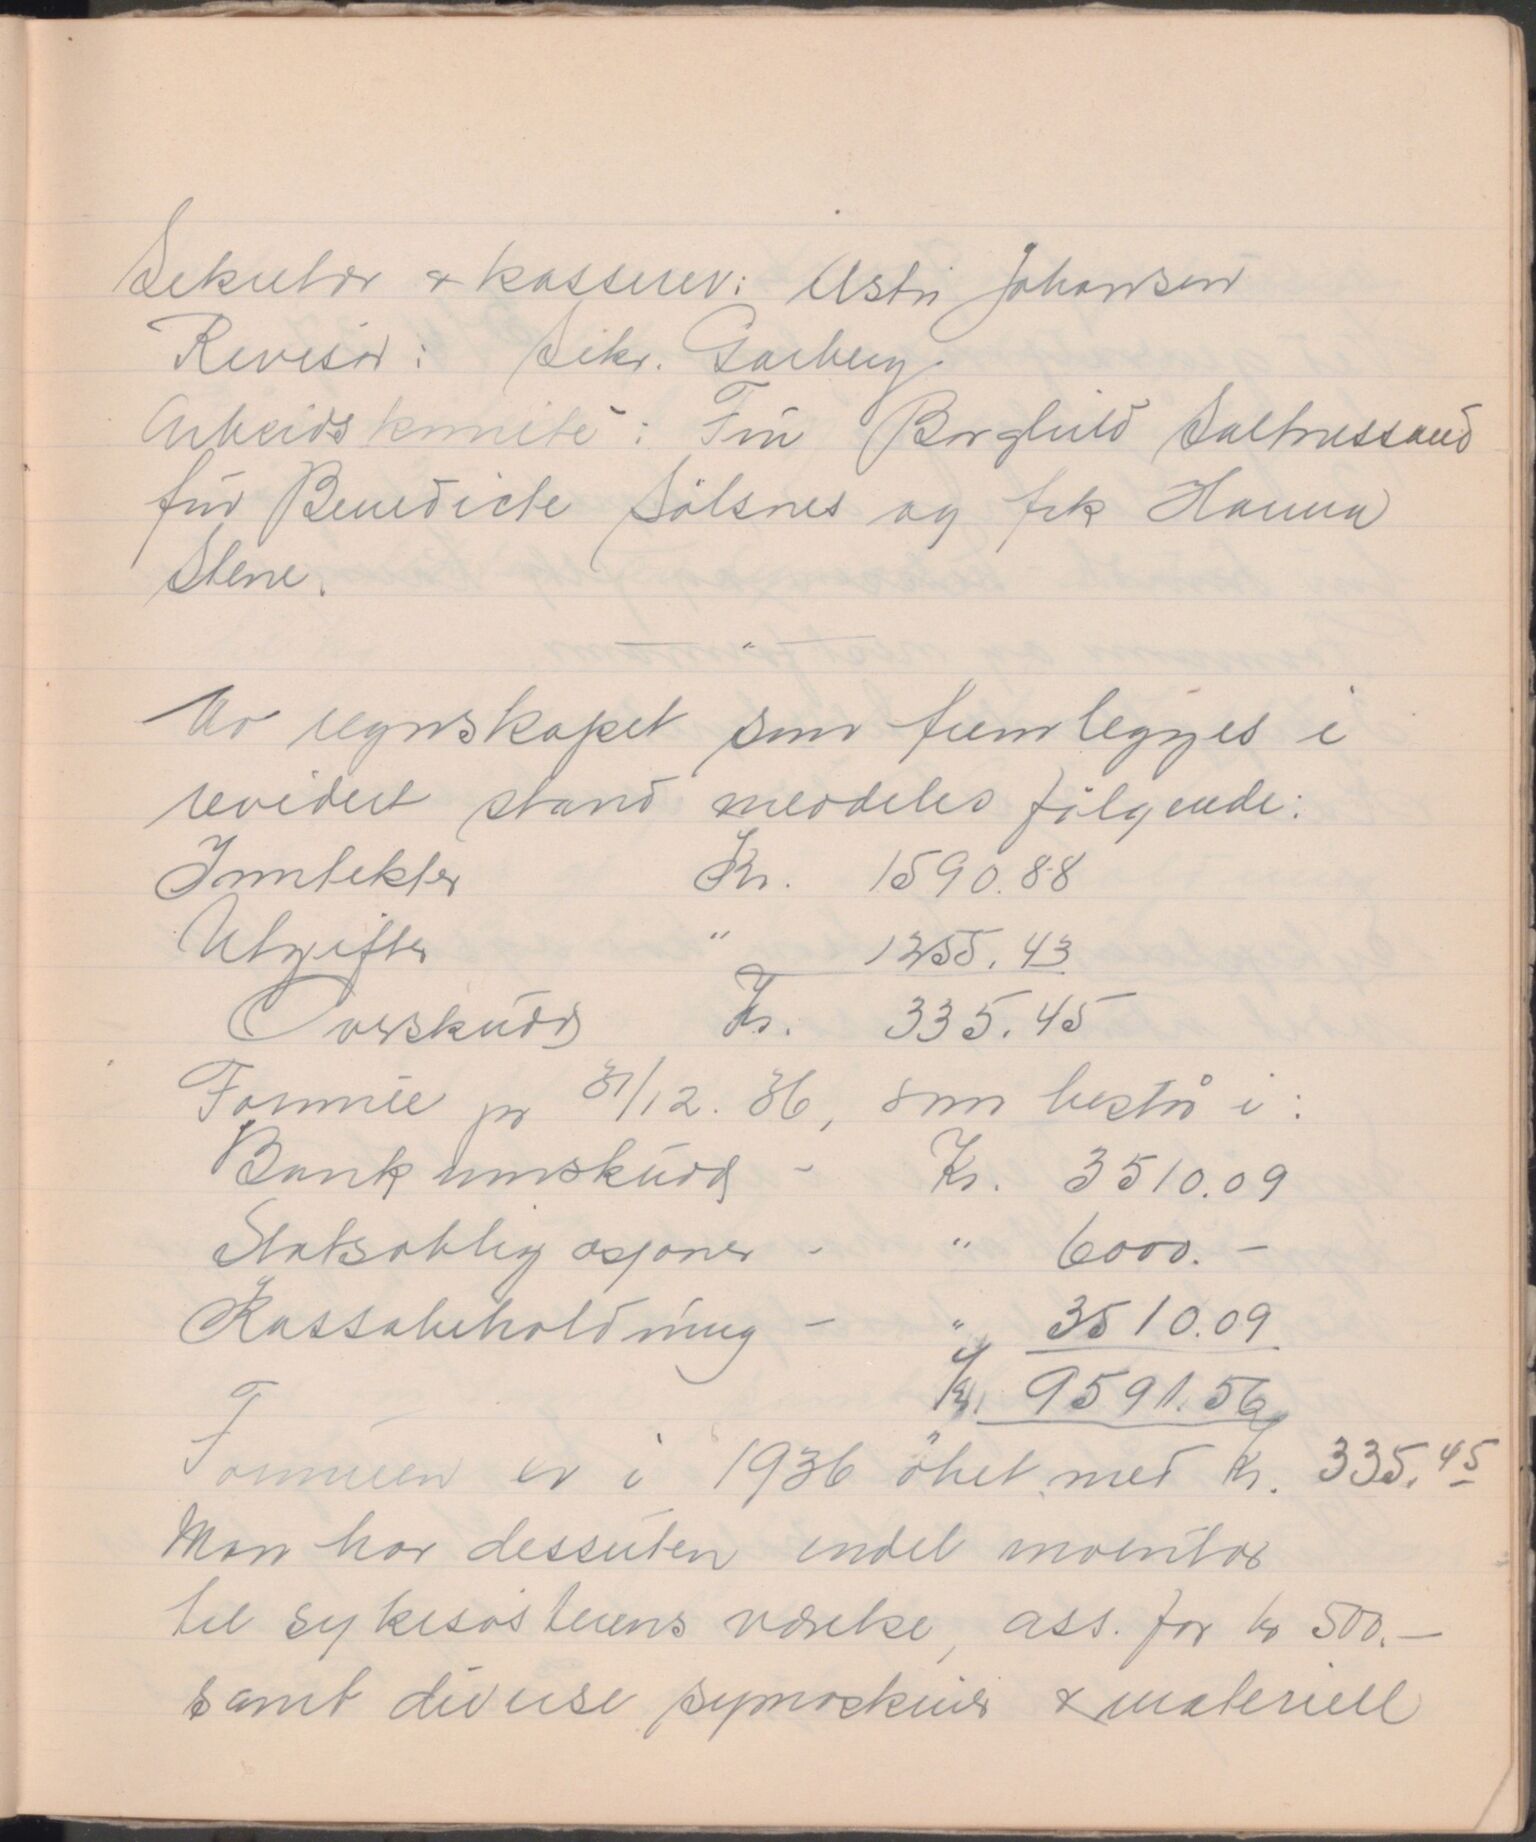 Sekretær & kasserer: Astri Johansen
Revisor: Sekr. Garberg
Arbeidskomité: Fru Borghild Saltnessand
fru Benedicte Sölsnes og frk Hanna
Stene.
Av regnskapet som fremlegges i
revidert stand meddeles fölgende:
Inntekter Kr. 1590.88
Utgifter " 1255.43
Overskudd Kr. 335.45
Formue pr 31/12. 36, som består i:
Bankinnskudd - Kr. 3510.09
Statsobligasjoner - " 6000.-
Kassabeholdning - " 3510.09
Kr. 9591.56
Formuen er i 1936 öket med kr. 335.45
Man har dessuten endel inventar
til sykesösterens værelse, ass. for kr 500.-
samt diverse symaskiner & materiell